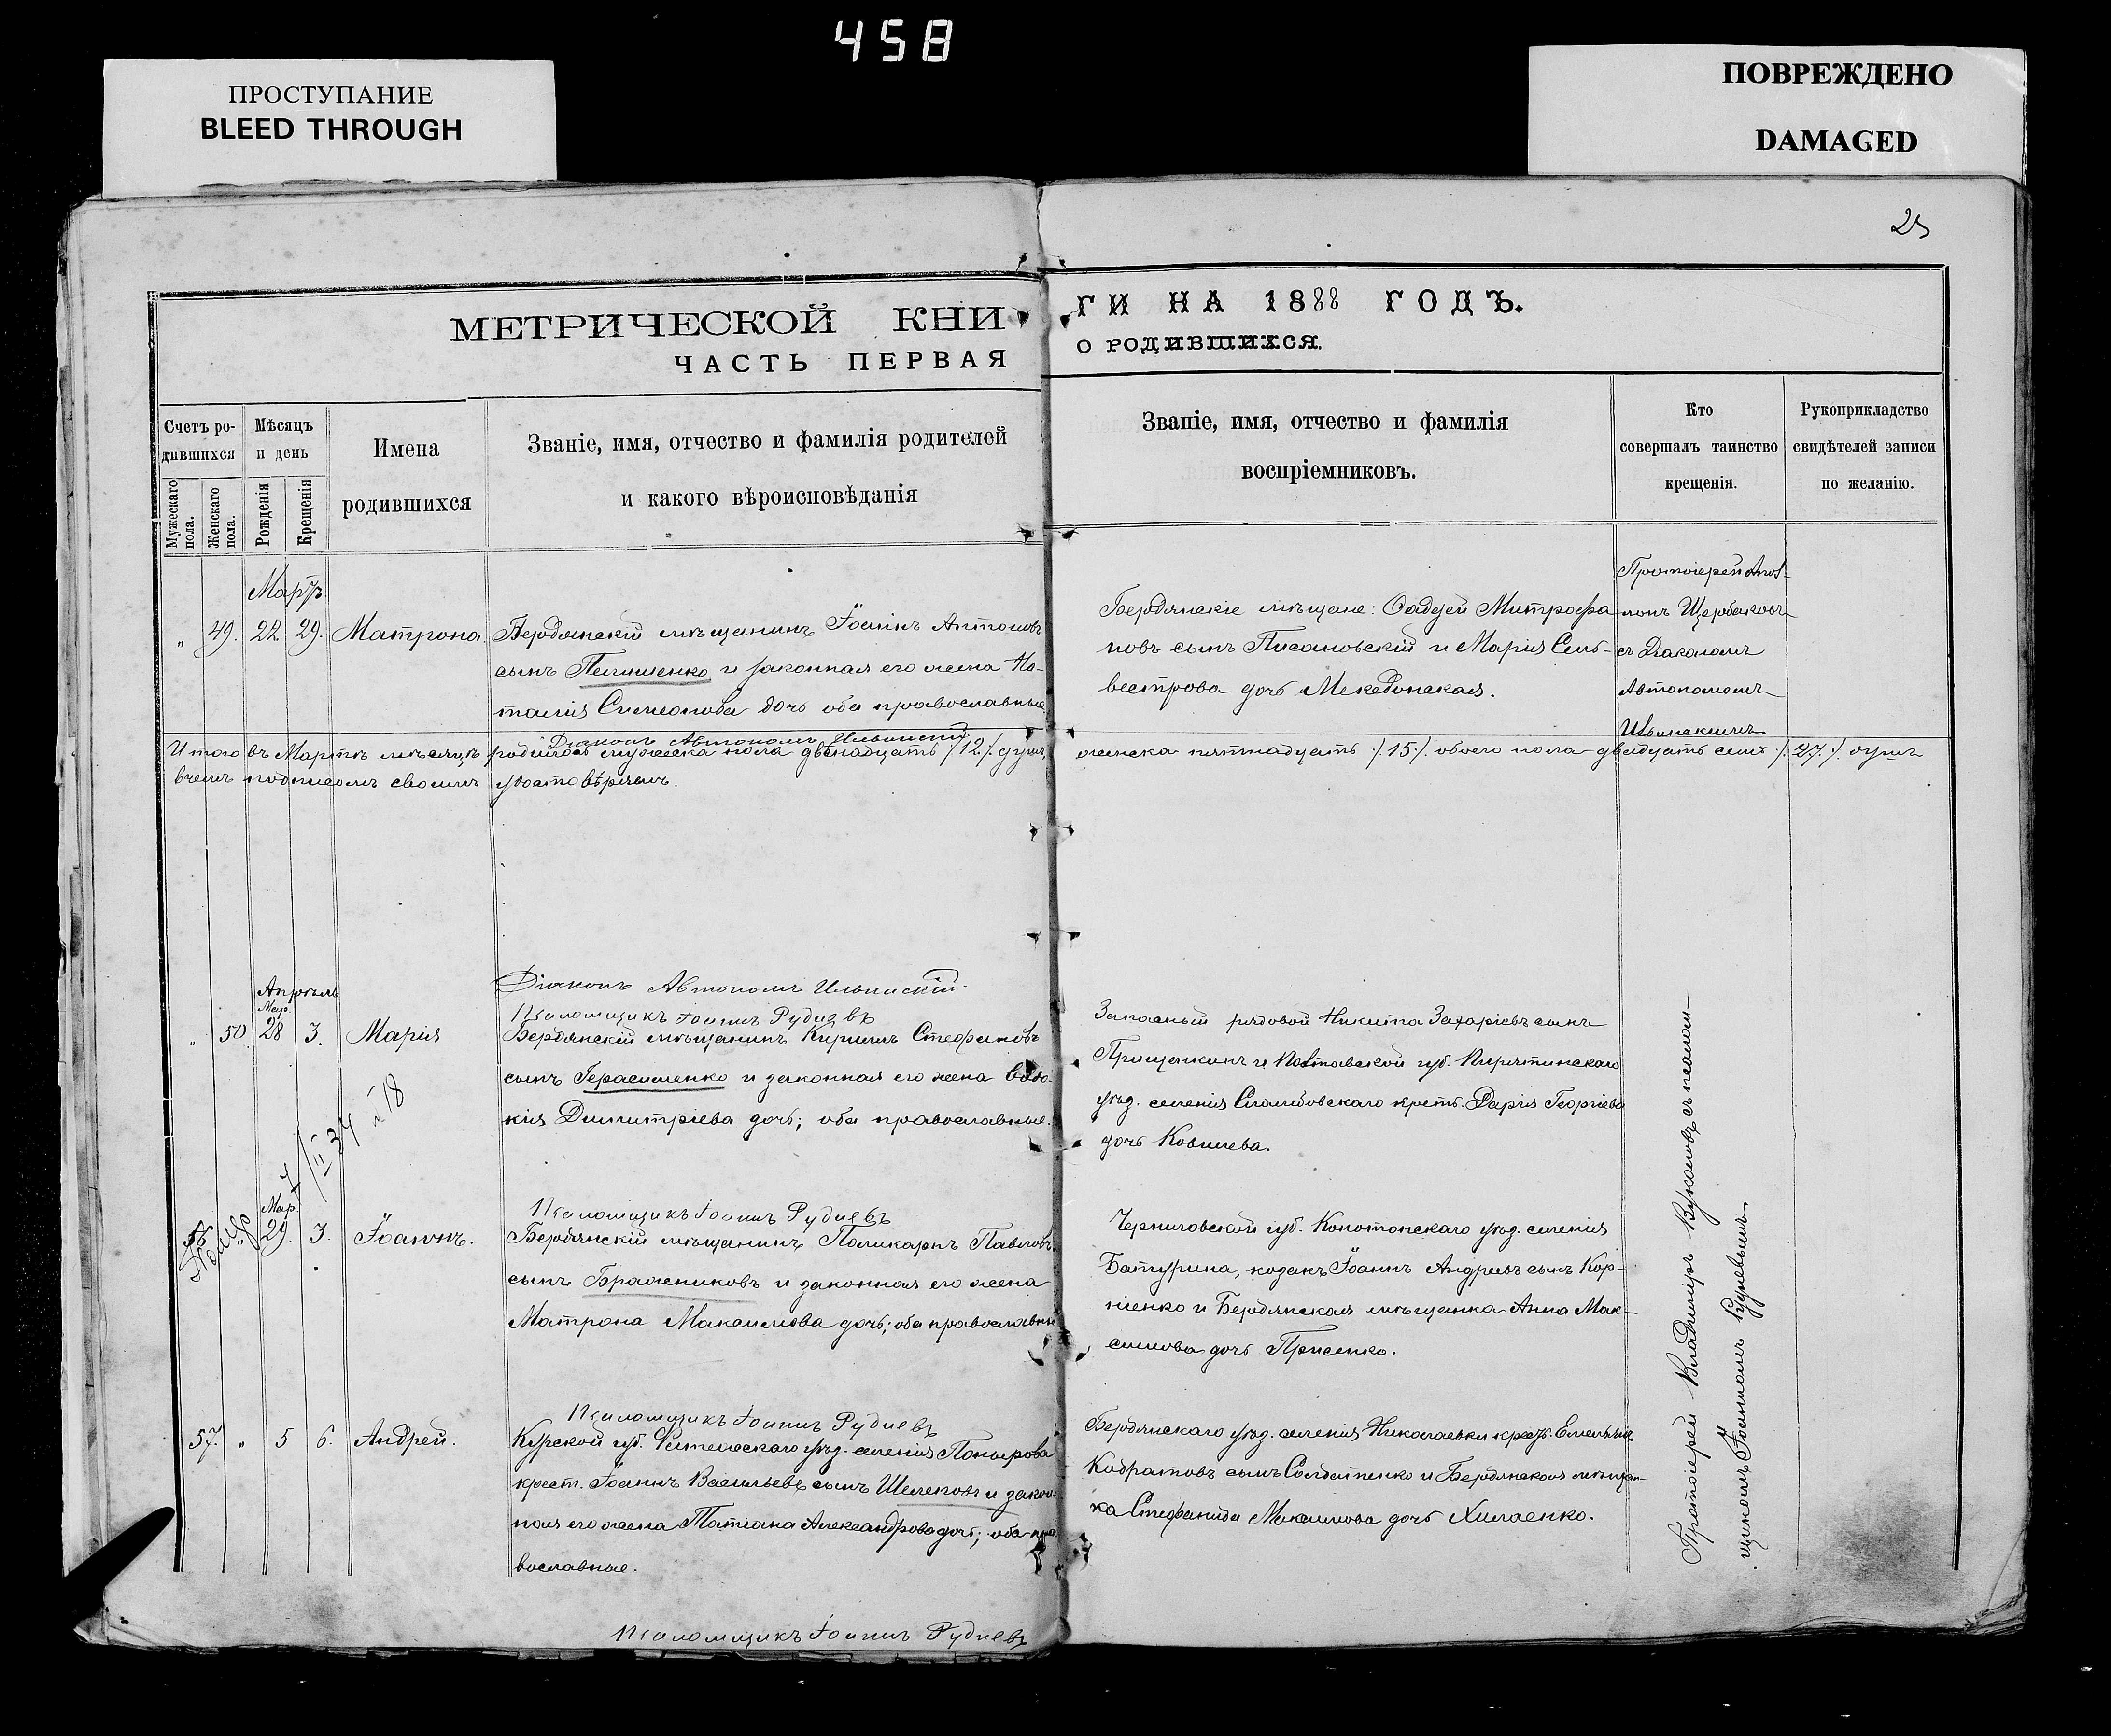 458
ПРОСТУПАНИЕ
BLEED THROUGH
ПОВРЕЖДЕНО
DAMAGED
25
МЕТРИЧЕСКОЙ КНИ
ГИ НА 1888 ГОДЪ.
ЧАСТЬ ПЕРВАЯ
О РОДИВШИХСЯ.
Счетъ ро-
дившихся
Мужескаго пола.
Женскаго пола.
Мѣсяцъ
и день
Рожденія
Крещенія
Имена
родившихся
Званіе, имя, отчество и фамилія родителей
и какого вѣроисповѣданія
Званіе, имя, отчество и фамилія
воспріемниковъ.
Кто
совершалъ таинство
крещенія.
Рукоприкладство
свидѣтелей записи
по желанію.
Мартъ
" 49. 22 29. Матрона
Бердянскій мѣщанинъ Іоаннъ Антоновъ
сынъ и законная его жена На-
талія Симеонова дочь оба православные
Бердянскіе мѣщане: Фадей Митрофа
новъ сынъ Писановскій и Марія Силь-
вестрова дочь
Протоіерей
Щербаковъ
съ Діакономъ
Автономомъ
Ильинскимъ
Діаконъ Автономъ Ильинскій
Итого въ Мартѣ мѣсяцѣ родилось мужеска пола двѣнадцать /12/. душъ,
женска пятнадцать /.15/. обоего пола двадцать семь /.27./. душъ
въ чемъ подписомъ своимъ удостовѣряемъ.
Діаконъ Автономъ Ильинскій.
Псаломщикъ Іоаннъ Рудневъ
Апрѣль
Мар.
" 50. 28 3. Марія
Бердянскій мѣщанинъ Кириллъ Стефановъ
сынъ Герасименко и законная его жена Евдо-
кія Димитріева дочь; оба православные.
Запасный рядовой Никита Захаріевъ сынъ
и Полтавской губ. Пирятинскаго
уѣзд. селенія крест. Дарія Георгіева
дочь
Псаломщикъ Іоаннъ Рудневъ
Мар.
56 " 29. 3. Іоаннъ.
Бердянскій мѣщанинъ Поликарпъ Павловъ
сынъ Бражниковъ и законная его жена
Матрона Максимова дочь; оба православны
Черниговской губ. Конотопскаго уѣзд. селенія
Батурина, козакъ Іоаннъ Андреевъ сынъ Кор-
ніенко и Бердянская мѣщанка Анна Мак-
симова дочь
Псаломщикъ Іоаннъ Рудневъ
57. " 5 6. Андрей.
Курской губ. уѣзд. селенія
крест. Іоаннъ Васильевъ сынъ Шелеповъ и закон-
ная его жена Татіана Александрова дочь; оба пра
вославные.
Бердянскаго уѣзд. селенія Николаевки крест. Емельянъ
Кодратовъ сынъ Солдатенко и Бердянская мѣщан-
ка Стефанида Максимова дочь
Протоіерей Владиміръ Вуколовъ съ псалом-
щикомъ Іоанномъ Рудневымъ.
Псаломщикъ Іоаннъ Рудневъ